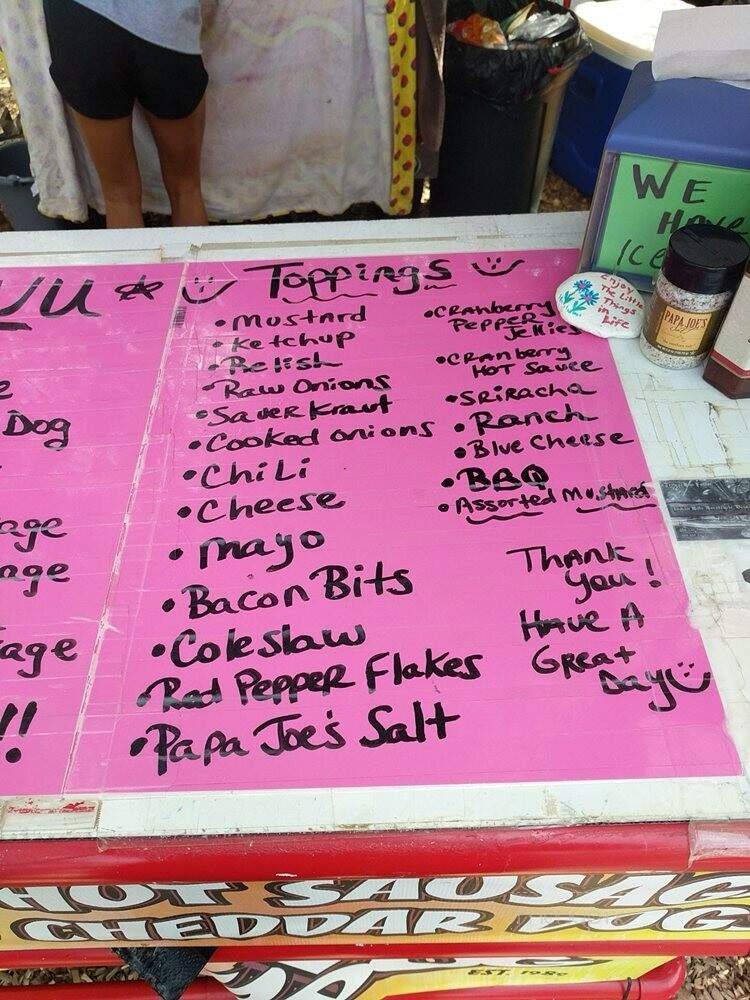 Toppings
• Mustard
• Ketchup
• Relish
• Raw Onions
• Sauer Kraut
• Cooked onions
• Chili
• Cheese
• Mayo
• Bacon Bits
• Coleslaw
• Red Pepper Flakes
• Papa Joe's Salt
• Cranberry
Pepper
Jellies
• Cranberry
Hot Sauce
• Sriracha
• Ranch
• Blue Cheese
• BBQ
• Assorted Mustard
Thank
You!
Have A
Great
Day
Dog
age
age
age
!!
WE
Have
ICE
Enjoy
The Little
Things
in
Life
PAPA JOE'S
HOT SAUSAG
CHEDDAR DOGS
EST. 1980